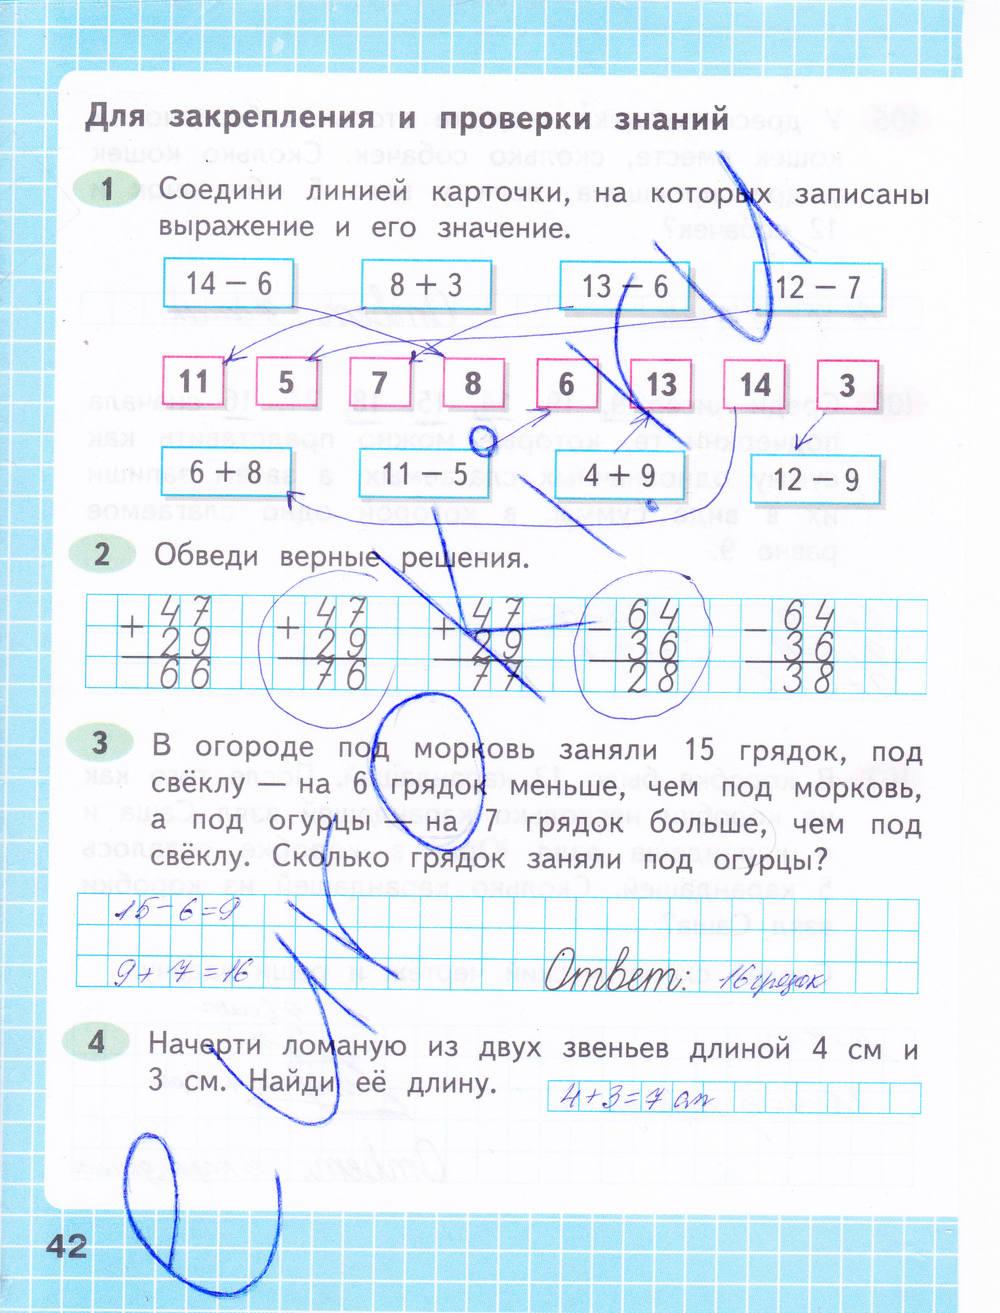 Для закрепления и проверки знаний
1 Соедини линией карточки, на которых записаны
выражение и его значение.
14 − 6 8 + 3 13 − 6 12 − 7
11 5 7 8 6 13 14 3
6 + 8 11 − 5 4 + 9 12 − 9
2 Обведи верные решения.
47 47 47 64 64
+ + + − −
29 29 29 36 36
66 76 77 28 38
3 В огороде под морковь заняли 15 грядок, под
свёклу — на 6 грядок меньше, чем под морковь,
а под огурцы — на 7 грядок больше, чем под
свёклу. Сколько грядок заняли под огурцы?
15 − 6 = 9
9 + 7 = 16 Ответ: 16 грядок
4 Начерти ломаную из двух звеньев длиной 4 см и
3 см. Найди её длину. 4 + 3 = 7 см
42